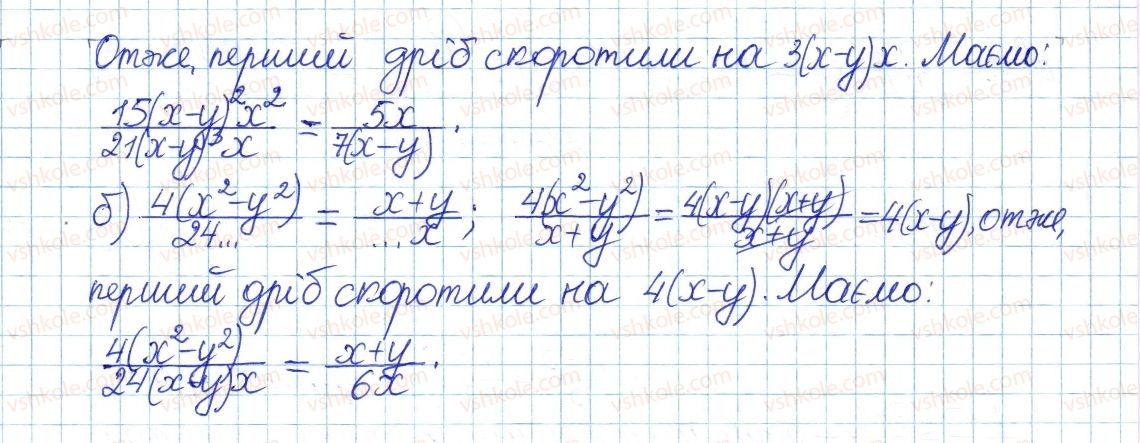 Отже, перший дріб скоротили на 3(x-y)x. Маємо:
15(x-y)²x² / 21(x-y)³x = 5x / 7(x-y).
б) 4(x²-y²) / 24... = x+y / ...x; 4(x²-y²) / x+y = 4(x-y)(x+y) / x+y = 4(x-y), отже,
перший дріб скоротили на 4(x-y). Маємо:
4(x²-y²) / 24(x-y)x = x+y / 6x.